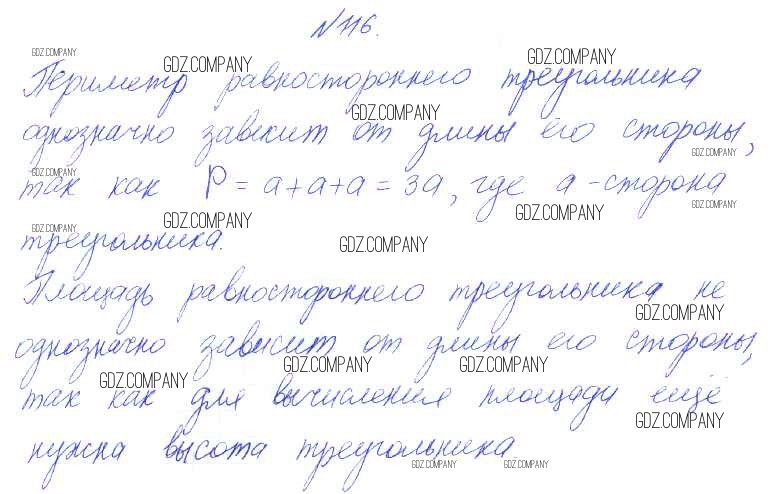 № 116.
GDZ.COMPANY GDZ.COMPANY GDZ.COMPANY
Периметр равностороннего треугольника
GDZ.COMPANY
однозначно зависит от длины его стороны,
GDZ.COMPANY GDZ.COMPANY
так как P = a + a + a = 3a, где a - сторона
GDZ.COMPANY GDZ.COMPANY GDZ.COMPANY GDZ.COMPANY
треугольника.
GDZ.COMPANY
Площадь равностороннего треугольника не
GDZ.COMPANY
однозначно зависит от длины его стороны,
GDZ.COMPANY GDZ.COMPANY GDZ.COMPANY
так как для вычисления площади ещё
GDZ.COMPANY
нужна высота треугольника
GDZ.COMPANY GDZ.COMPANY